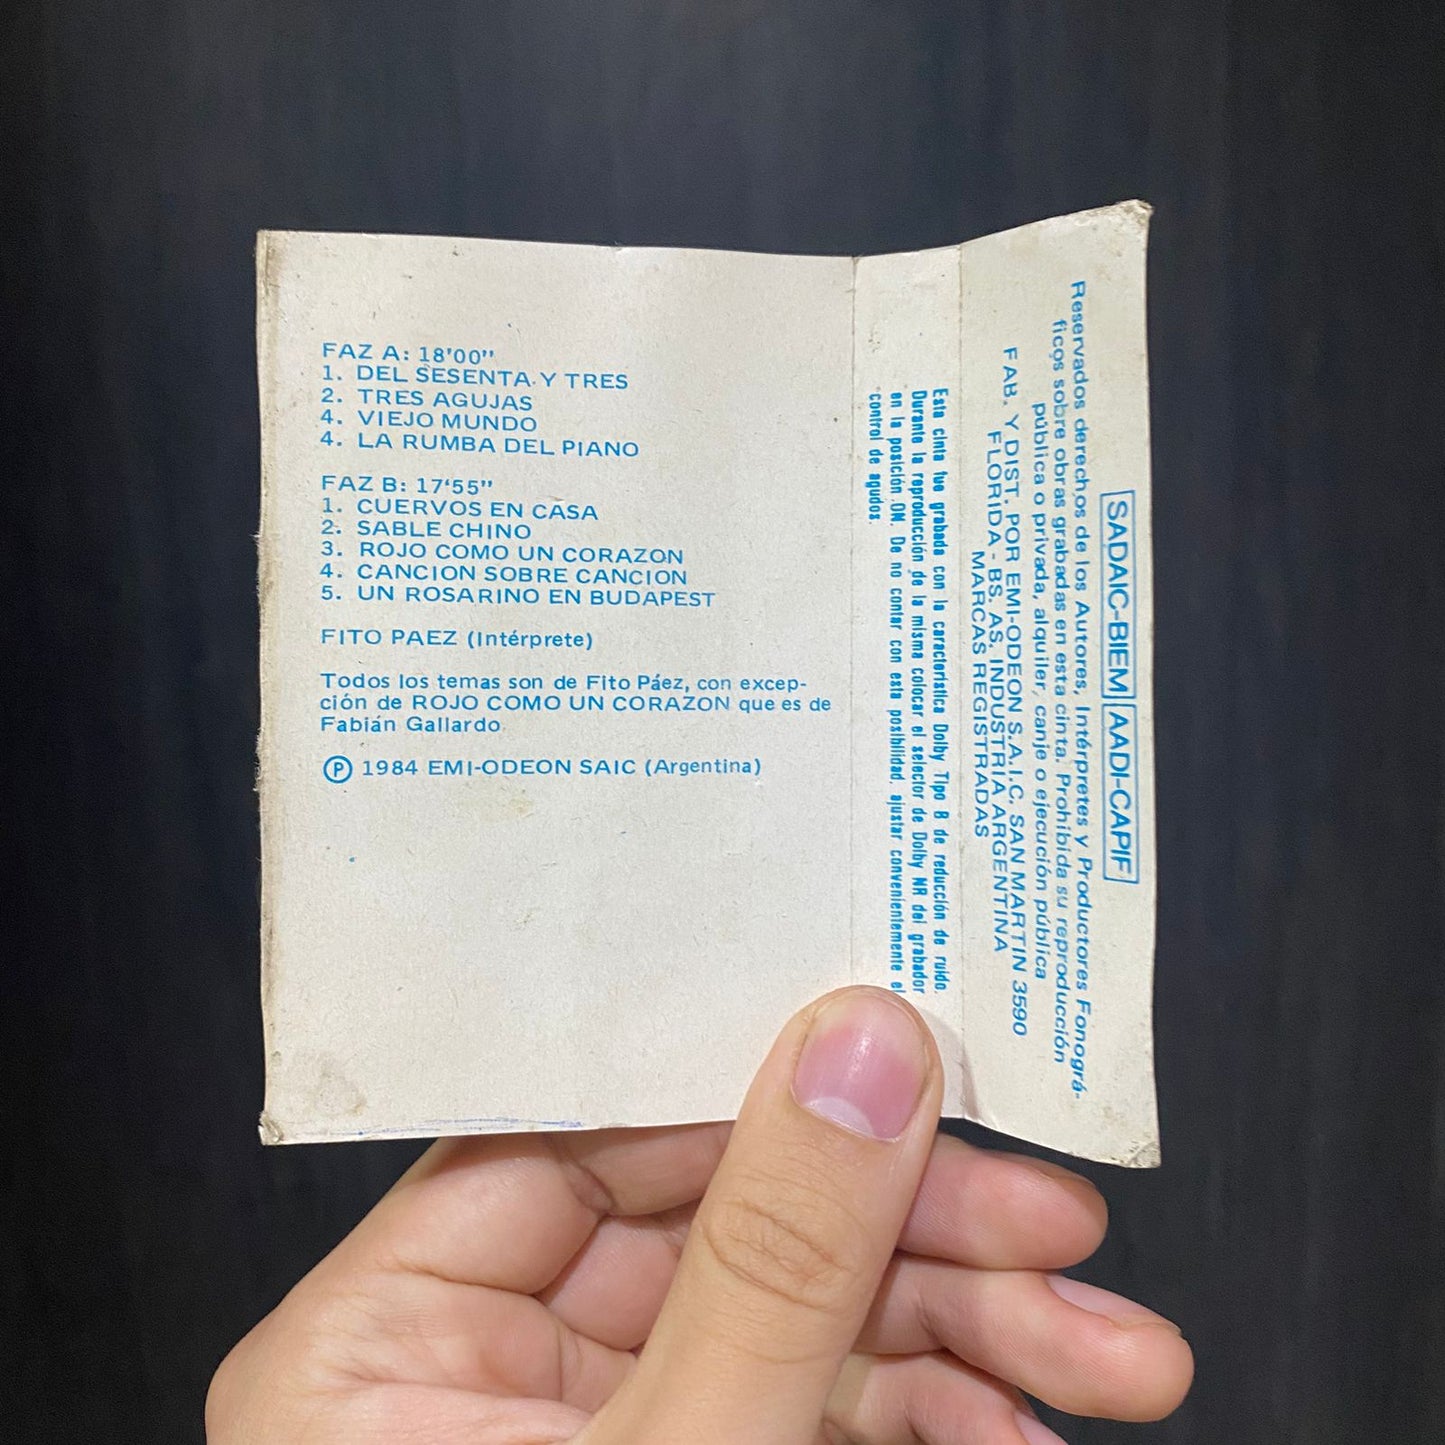 FAZ A: 18'00"
1. DEL SESENTA Y TRES
2. TRES AGUJAS
4. VIEJO MUNDO
4. LA RUMBA DEL PIANO
FAZ B: 17'55"
1. CUERVOS EN CASA
2. SABLE CHINO
3. ROJO COMO UN CORAZON
4. CANCION SOBRE CANCION
5. UN ROSARINO EN BUDAPEST
FITO PAEZ (Intérprete)
Todos los temas son de Fito Páez, con excep-
ción de ROJO COMO UN CORAZON que es de
Fabián Gallardo
Ⓟ 1984 EMI-ODEON SAIC (Argentina)
Esta cinta fue grabada con la característica Dolby Tipo B de reducción de ruido.
Durante la reproducción de la misma colocar el selector de Dolby NR del grabador
en la posición ON. De no contar con esta posibilidad, ajustar convenientemente el
control de agudos.
SADAIC-BIEM AADI-CAPIF
Reservados derechos de los Autores, Intérpretes y Productores Fonográ-
ficos sobre obras grabadas en esta cinta. Prohibida su reproducción
pública o privada, alquiler, canje o ejecución pública
FAB. Y DIST. POR EMI-ODEON S.A.I.C. SAN MARTIN 3590
FLORIDA - BS. AS. INDUSTRIA ARGENTINA
MARCAS REGISTRADAS